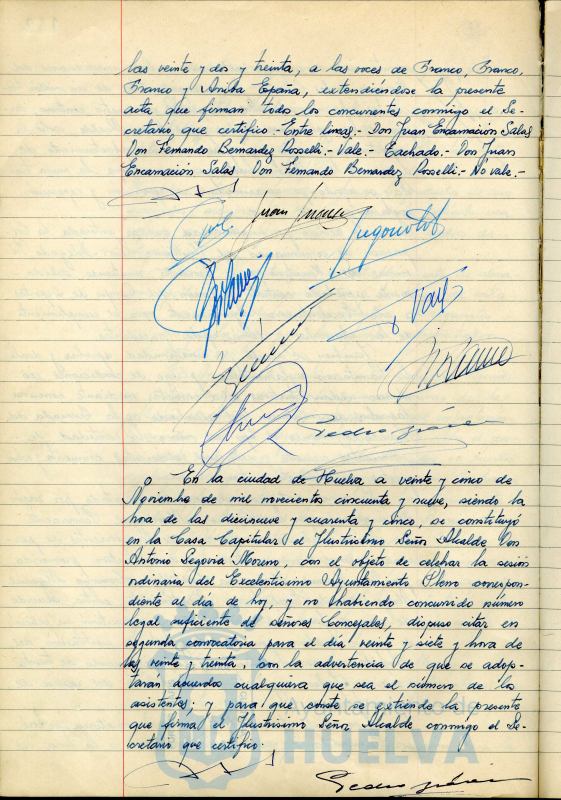 las veinte y dos y treinta, a las voces de Franco, Franco,
Franco y Arriba España, extendiéndose la presente
acta que firman todos los concurrentes conmigo el Se-
cretario, que certifico.- Entre lineas.- Don Juan Encarnación Salas
Don Fernando Bernardez Rosselli.- Vale.- Tachado.- Don Juan
Encarnación Salas Don Fernando Bernardez Rosselli.- No vale.-
Pedro
En la ciudad de Huelva a veinte y cinco de
Noviembre de mil novecientos cincuenta y nueve, siendo la
hora de las diecinueve y cuarenta y cinco, se constituyó
en la Casa Capitular el Ilustrisimo Señor Alcalde Don
Antonio Segovia Moreno, con el objeto de celebrar la sesión
ordinaria del Excelentisimo Ayuntamiento Pleno correspon-
diente al día de hoy, y no habiendo concurrido número
legal suficiente de señores Concejales, dispuso citar en
segunda convocatoria para el día veinte y siete y hora de
las veinte y treinta, con la advertencia de que se adop-
tarán acuerdos cualquiera que sea el número de los
asistentes; y para que conste se extiende la presente
que firma el Ilustrisimo Señor Alcalde conmigo el Se-
cretario que certifico.
HUELVA
Pedro